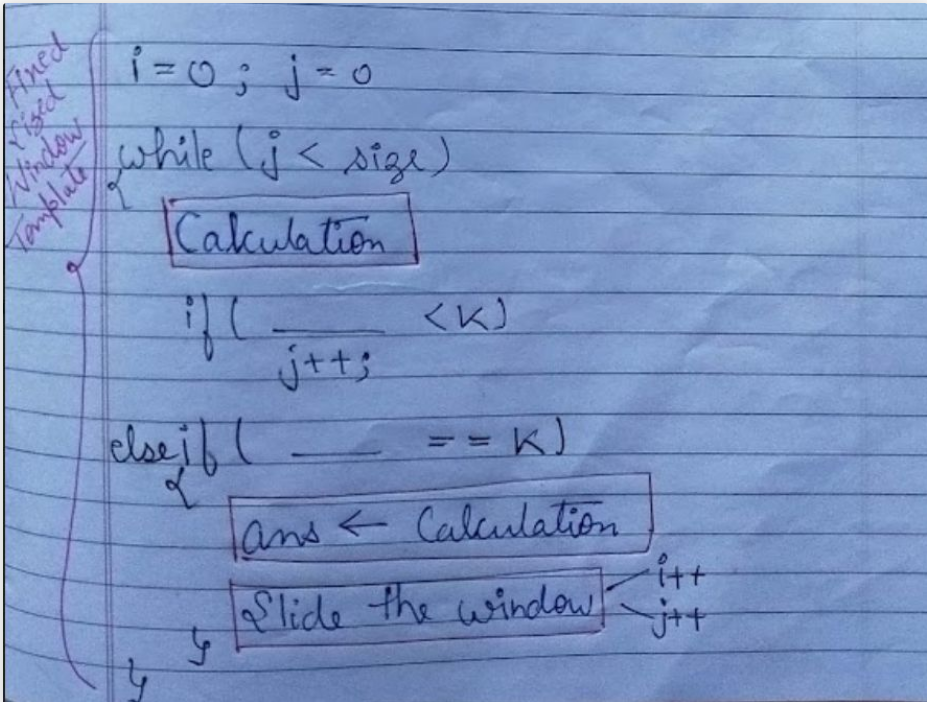 Fixed
Sized
Window
Template
i = 0 ; j = 0
while (j < size)
{
Calculation
if ( ____ < K)
j++;
else if ( ____ == K)
{
ans ← Calculation
Slide the window
i++
j++
}
}